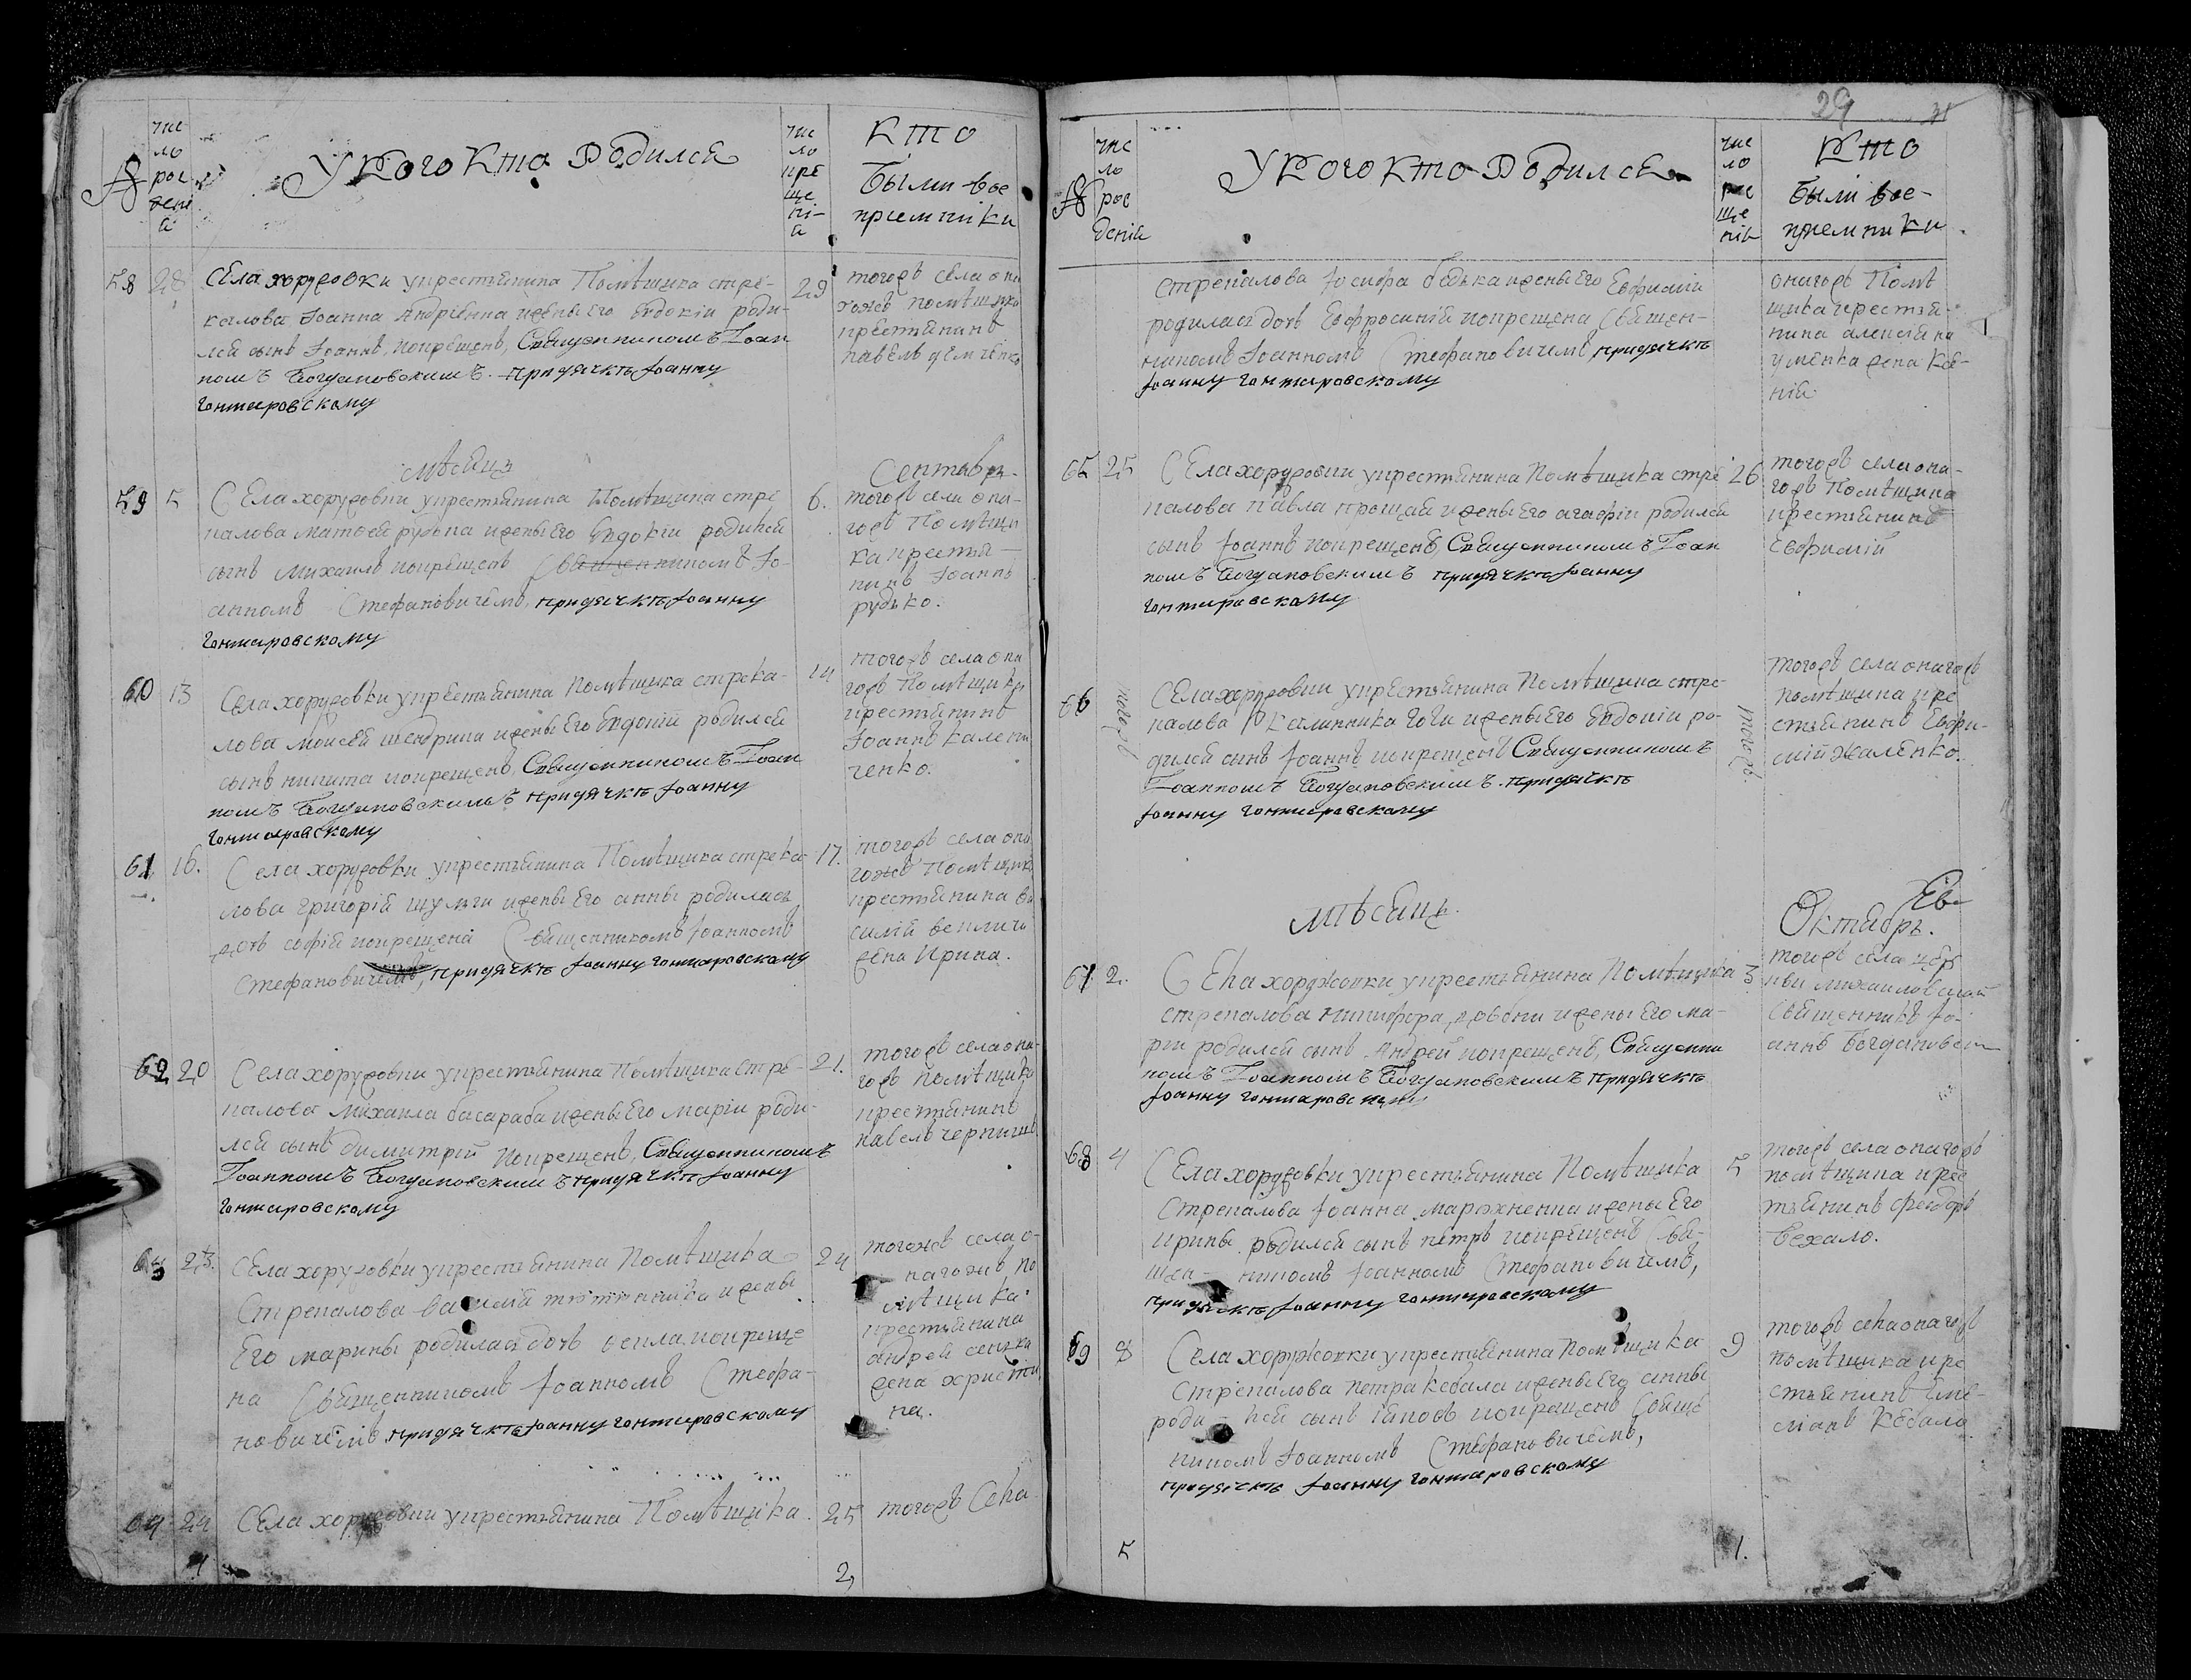 №
число рожденія
У Кого Кто Родился
число крещенія
Кто
были вос
приемники
58 28 Села хоружовки укрестьянина Помѣщика стре-
калова Іоанна Андріенка ижены Его Евдокіи роди-
лся сынъ Іоаннъ, икрещенъ, Священникомъ Іоан
номъ Богдановскимъ. придячкѣ Іоанну
Гонтаровскому
29 тогожъ села она
гожъ помѣщика
крестьянинъ
павелъ демченко
мѣсяць Сентябрь.
59 5 Села хоружовки укрестьянина Помѣщика стре
калова матѳея рудька ижены Его Евдокіи родился
сынъ михаилъ икрещенъ Священникомъ Іо-
анномъ Стефановичемъ, придячкѣ Іоанну
Гонтаровскому
6. тогожъ села она-
гожъ Помѣщи
ка крестья-
нинъ Іоаннъ
рудько.
60 13 Села хоружовки укрестьянина Помѣщика стрека-
лова моисея шендрика ижены Его Евдокіи родился
сынъ никита икрещенъ, Священникомъ Іоан
номъ Богдановскимъ придячкѣ Іоанну
Гонтаровскому
14 тогожъ села она
гожъ Помѣщика
крестьянинъ
Іоаннъ калени
ченко.
61 16. Села хоружовки укрестьянина Помѣщика стрека
лова григорія шульги ижены Его анны родилась
дочь софія икрещена Священникомъ Іоанномъ
Стефановичемъ, придячкѣ Іоанну Гонтаровскому
17. тогожъ села она
гожъ Помѣщика
крестьянина ва
силія величк
жена Ирина.
62 20 Села хоружовки укрестьянина Помѣщика Стре-
калова михаила басараба ижены Его маріи роди-
лся сынъ димитрій икрещенъ, Священникомъ
Іоанномъ Богдановскимъ придячкѣ Іоанну
Гонтаровскому
21. тогожъ села она-
гожъ помѣщика
крестьянинъ
павелъ черниш
63 23. Села хоружовки укрестьянина Помѣщика
Стрекалова василія ижены
Его марины родилась дочь ѳекла икреще
на Священникомъ Іоанномъ Стефа-
новичемъ, придячкѣ Іоанну Гонтаровскому
24 тогожъ села о-
нагожъ по
мѣщика
крестьянина
андрея сенька
жена христи
на.
64 24 Села хоружовки укрестьянина Помѣщика
25 тогожъ Села
4
2,
29
№
число рожденій
У Кого Кто Родился
Кто
были вос-
приемники.
стрекалова Іосифа бедька ижены Его Евфиміи
родилась дочь Евфросинія икрещена Священ-
никомъ Іоанномъ Стефановичемъ придячкѣ
Іоанну Гонтаровскому
онагожъ Помѣ
щика крестья-
нина алексія на
уменка жена Ксе-
нія.
65 25 Села хоружовки укрестьянина Помѣщика стре
калова павла прощая ижены Его агафіи родился
сынъ Іоаннъ икрещенъ, Священникомъ Іоан
номъ Богдановскимъ придячкѣ Іоанну
Гонтаровскому
26 тогожъ села она-
гожъ Помѣщика
крестьянинъ
Евфимій
66 тогожъ Села хоружовки укрестьянина Помѣщика стре-
калова Калинника Гоги ижены Его Евдокіи ро-
дился сынъ Іоаннъ икрещенъ Священникомъ
Іоанномъ Богдановскимъ. придячкѣ
Іоанну Гонтаровскому
тогожъ. тогожъ села онагожъ
помѣщика кре
стьянинъ Евфи-
мій Жаленко.
мѣсяць. Октябрь.
67 2. Села хоружовки укрестьянина Помѣщика
стрекалова никифора довбни ижены Его ма-
ріи родился сынъ Андрей икрещенъ, Священни
комъ Іоанномъ Богдановскимъ придячкѣ
Іоанну Гонтаровскому
3 тогожъ села цер
кви михаиловской
Священникъ Іо-
аннъ Богдановск
68 4 Села хоружовки укрестьянина Помѣщика
Стрекалова Іоанна марохненка ижены Его
ирины родился сынъ петръ икрещенъ Свя-
щен- никомъ Іоанномъ Стефановичемъ,
придячкѣ Іоанну Гонтаровскому
5 тогожъ села онагожъ
помѣщика крес
тьянинъ Феодоръ
бехало.
69 8 Села хоружовки укрестьянина Помѣщика
Стрекалова петра кебала ижены Его анны
роди- лся сынъ іяковъ икрещенъ Свяще
никомъ Іоанномъ Стефановичемъ,
придячкѣ Іоанну Гонтаровскому
9 тогожъ села онагожъ
помѣщика кре
стьянинъ Еме-
ліанъ Кебала
5
1.